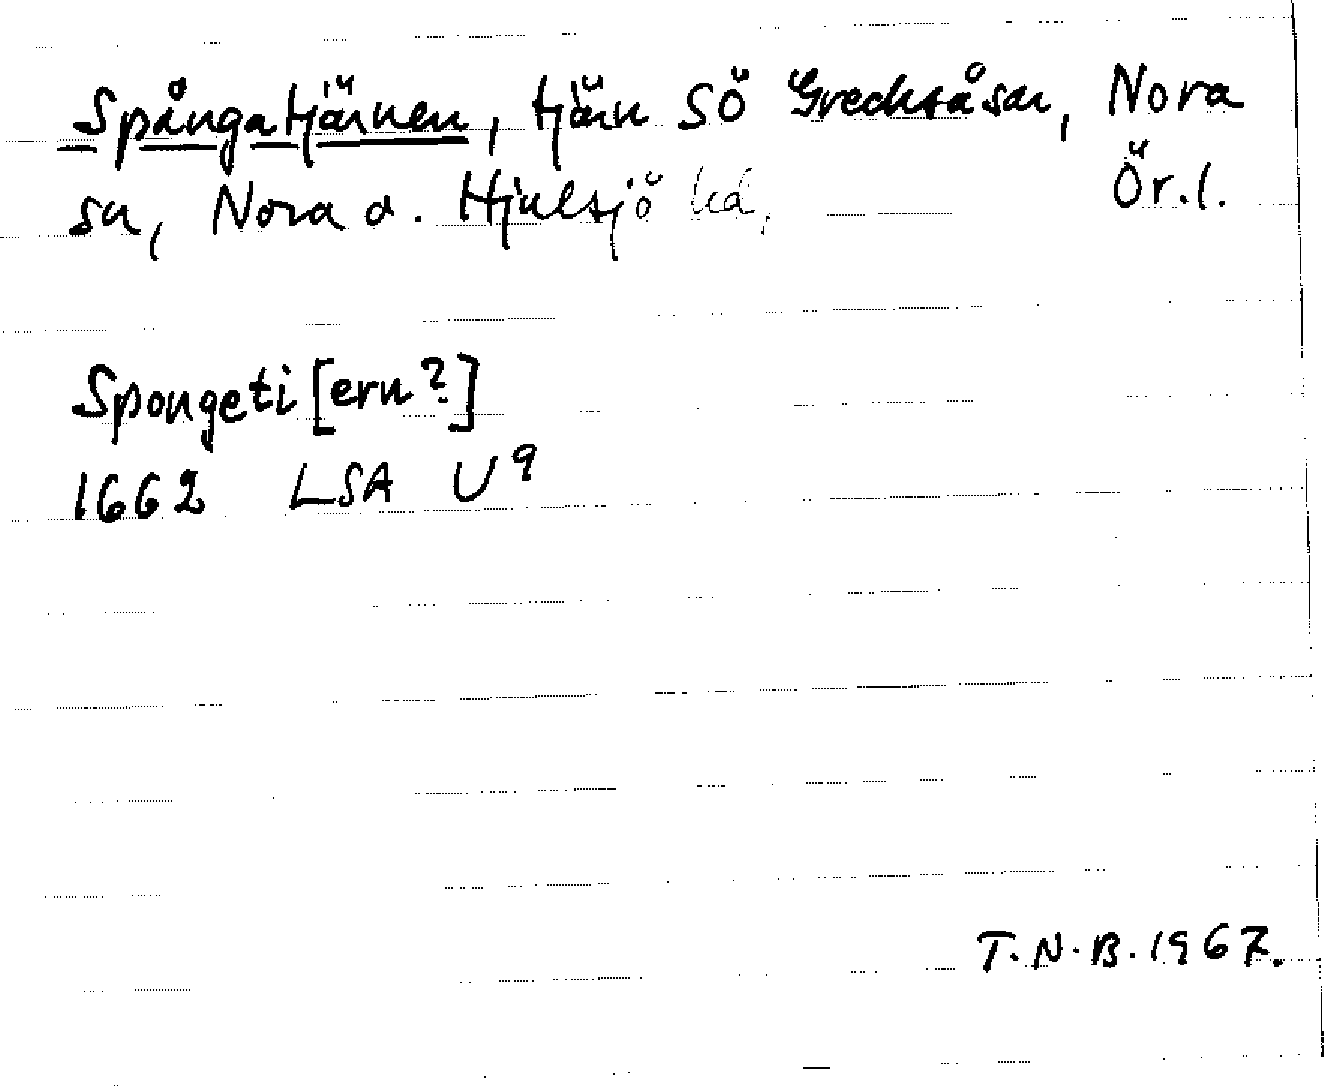 Spångatjärnen, tjärn SÖ Grecksåsar, Nora
sn, Nora o. Hjulsjö hd, Ör.l.
Spongeti [ern?]
1662 LSA U9
T.N.B. 1967.